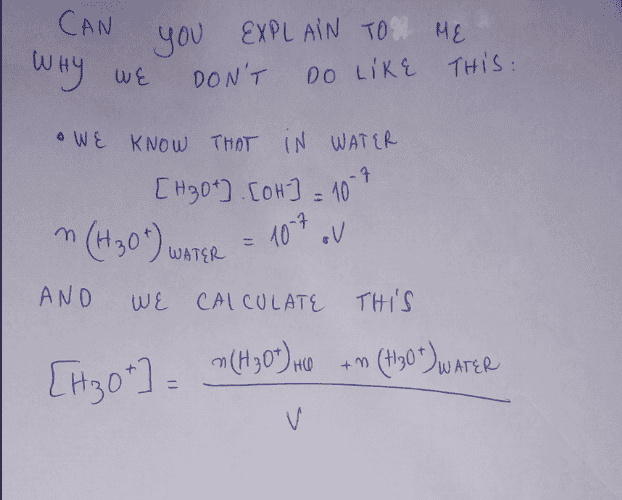 CAN YOU EXPLAIN TO ME
WHY WE DON'T DO LIKE THIS:
• WE KNOW THAT IN WATER
[H3O+].[OH-] = 10^-7
n(H3O+)WATER = 10^-7 . V
AND WE CALCULATE THIS
[H3O+] = n(H3O+)HCl + n(H3O+)WATER
V